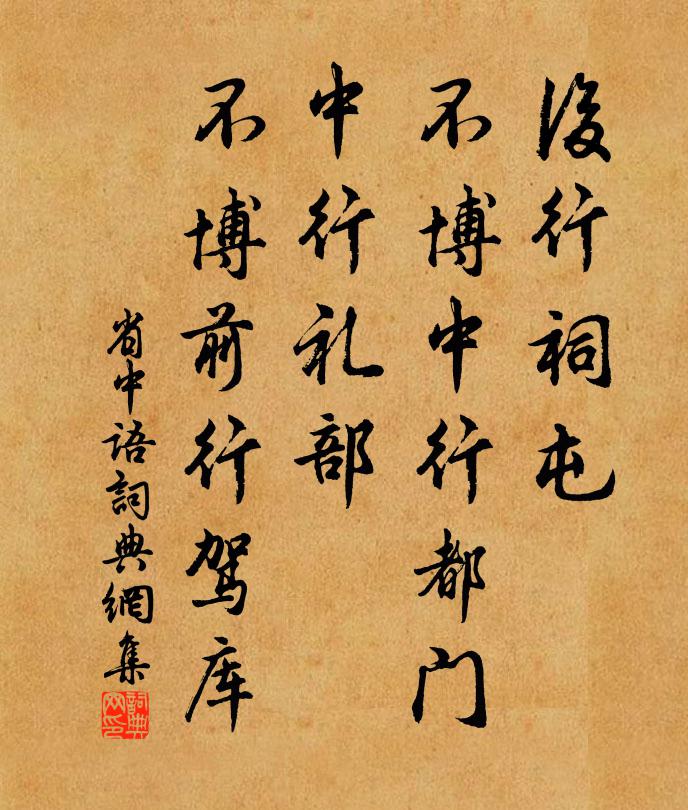 後行祠屯
不博中行都门
中行礼部
不博前行驾库
省中语詞典網集
詞典网印